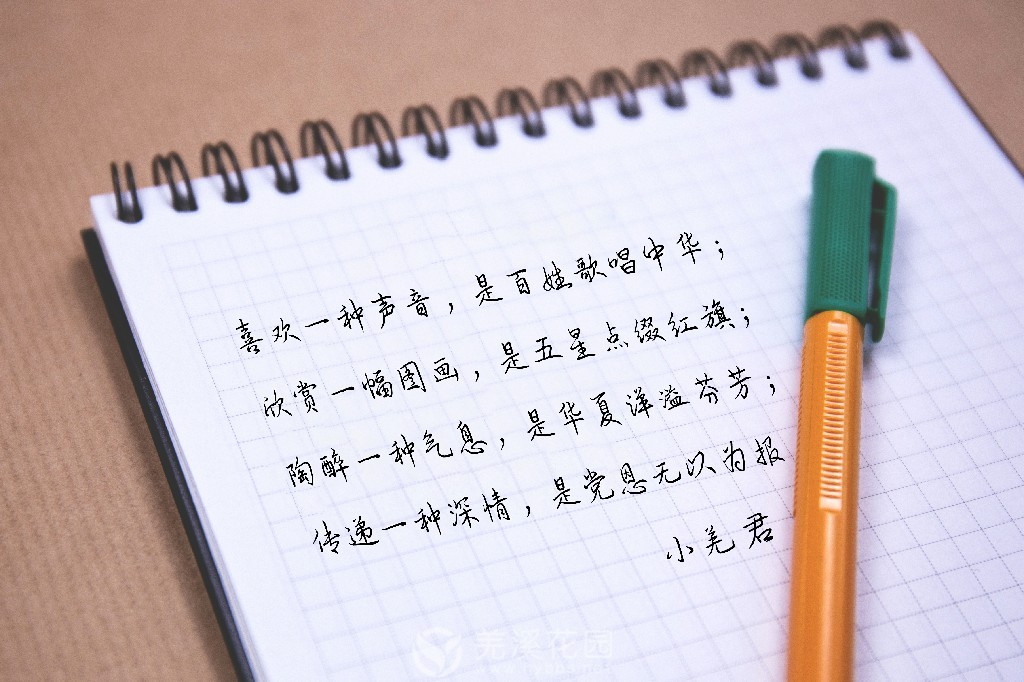 喜欢一种声音，是百姓歌唱中华；
欣赏一幅图画，是五星点缀红旗；
陶醉一种气息，是华夏洋溢芬芳；
传递一种深情，是党恩无以为报
小羌君
羌溪花园